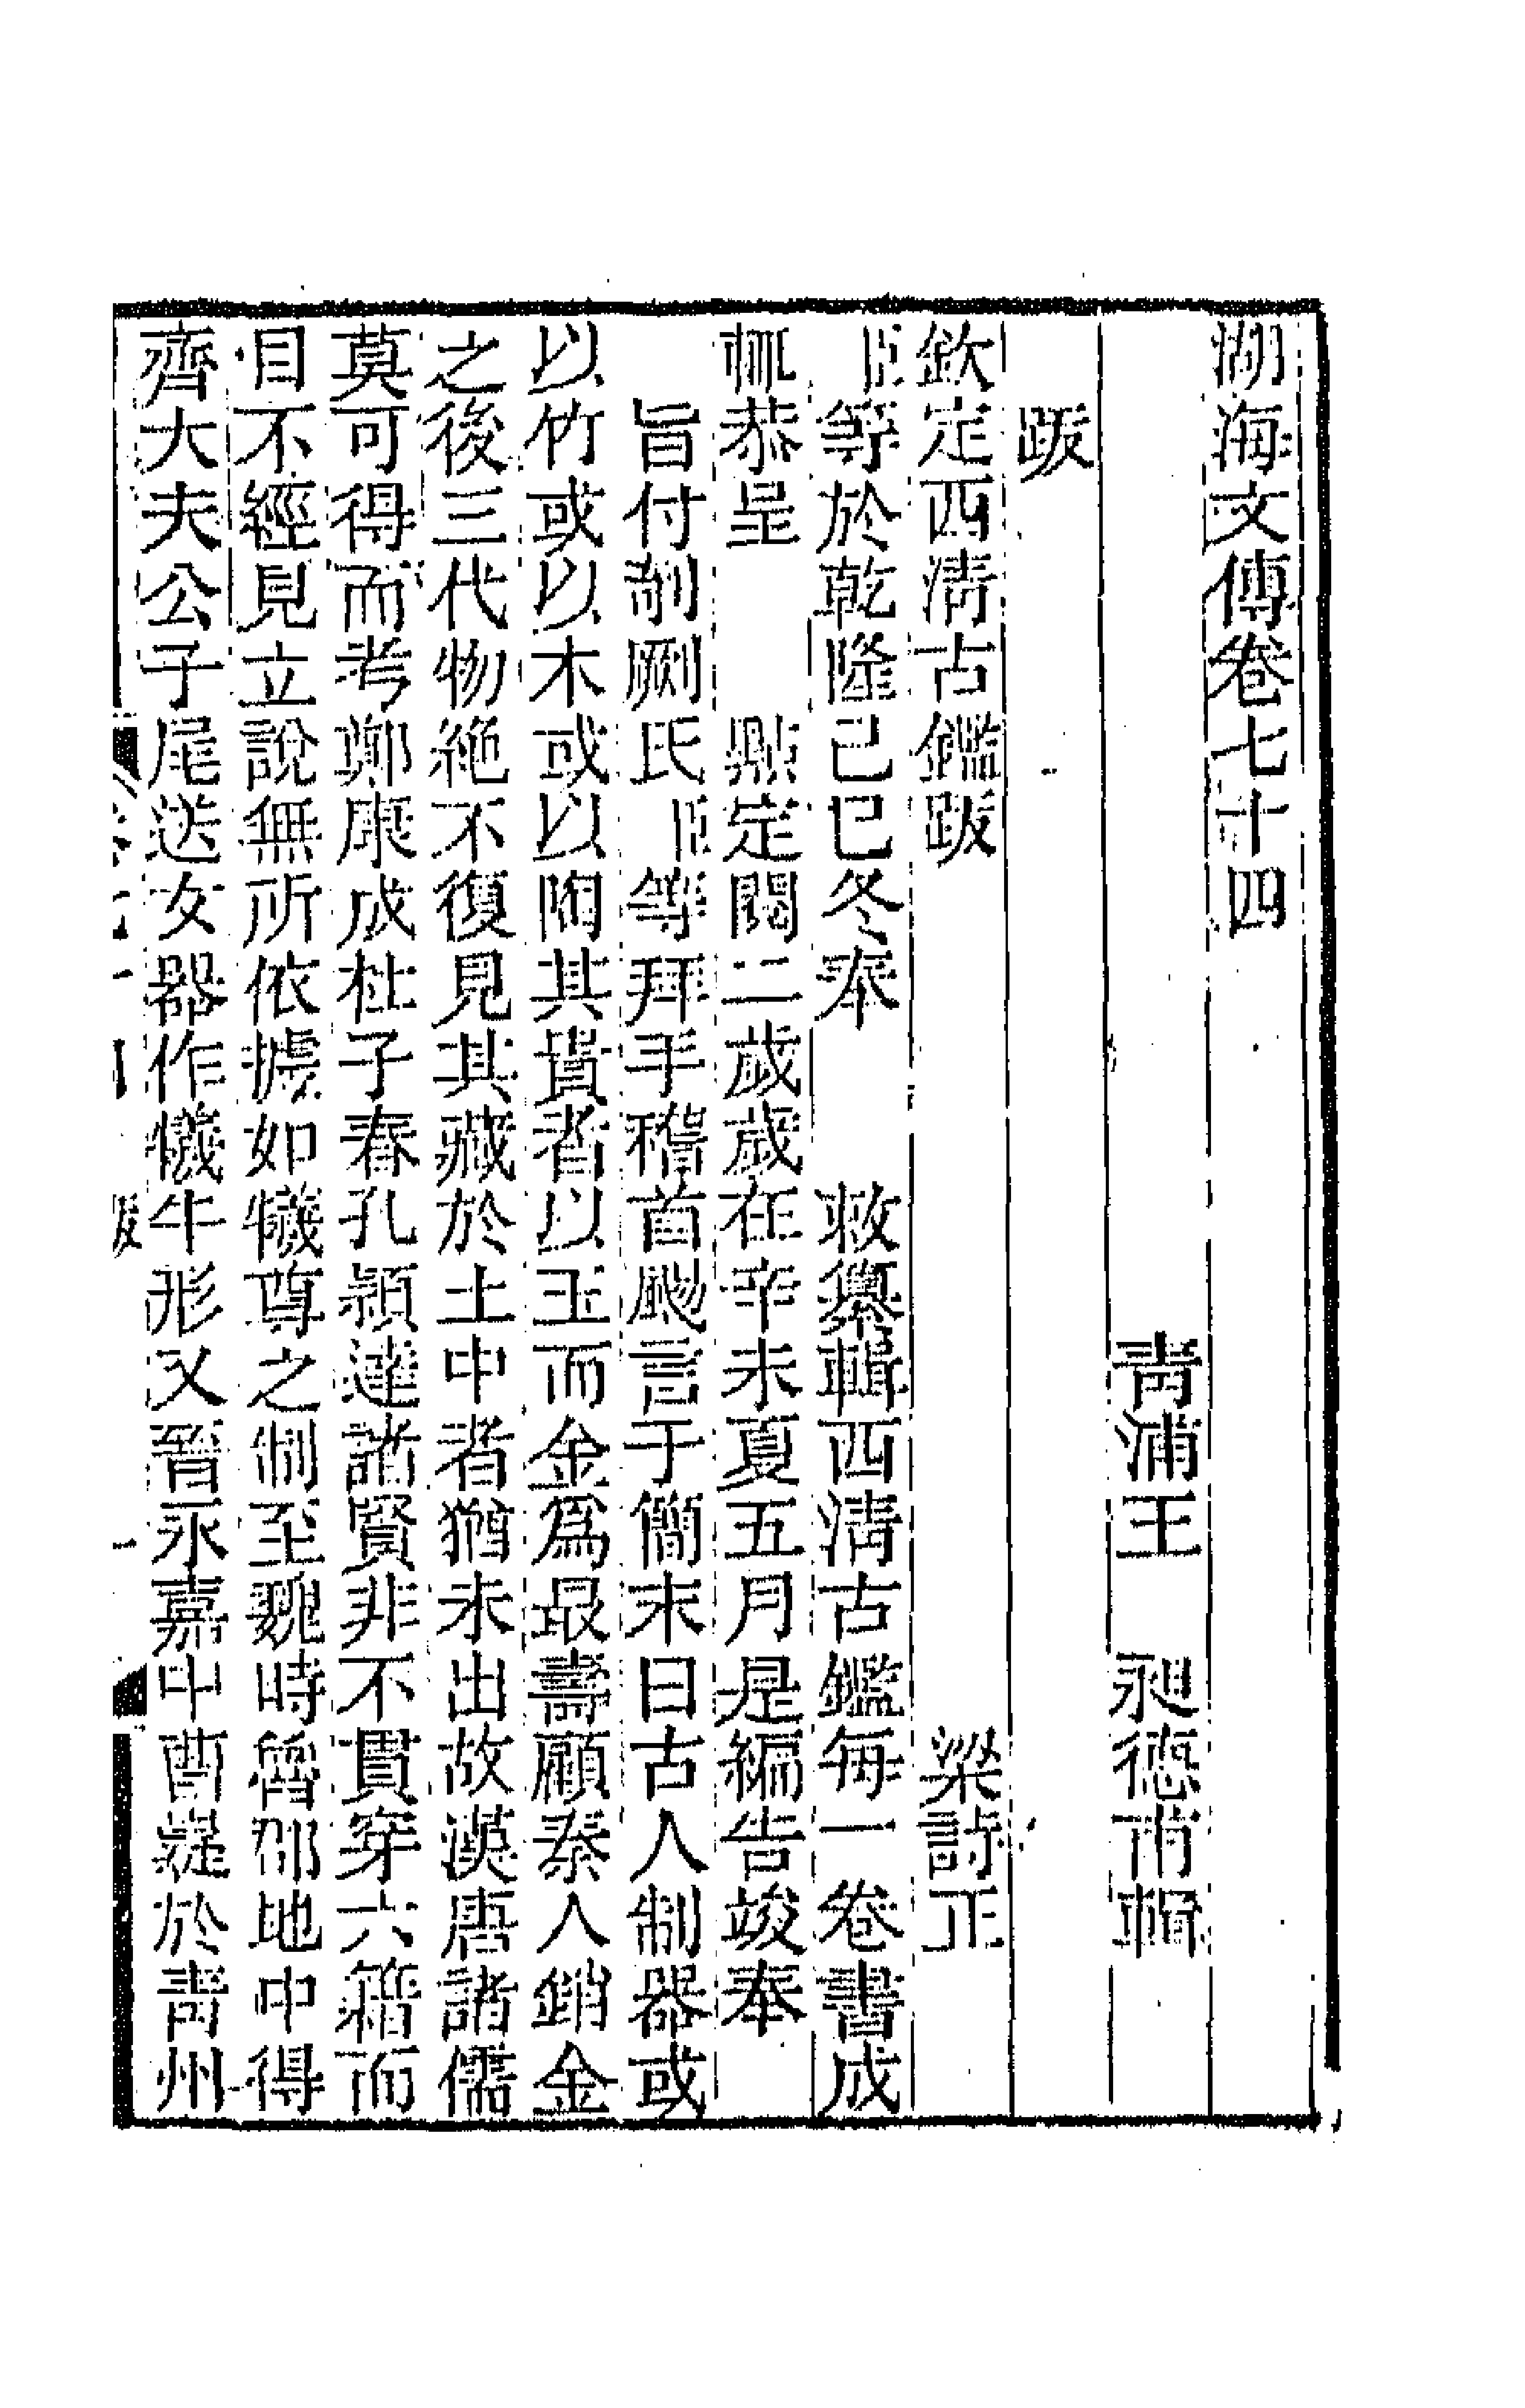 湖海文傳卷七十四
青浦王 昶德甫輯
跋
欽定西清古鑑跋 梁詩正
臣等於乾隆己巳冬奉 敕纂輯西清古鑑每一卷書成
輒恭呈 點定閱二歲歲在辛未夏五月是編告竣奉
旨付剞劂氏臣等拜手稽首颺言于簡末曰古人制器或
以竹或以木或以陶其貴者以玉而金爲最壽顧秦人銷金
之後三代物絶不復見其藏於土中者猶未出故漢唐諸儒
莫可得而考鄭康成杜子春孔穎達諸賢非不貫穿六籍而
目不經見立說無所依據如犧尊之制至魏時魯郡地中得
齊大夫公子尾送女器作犧牛形又晉永嘉中曹嶷於青州